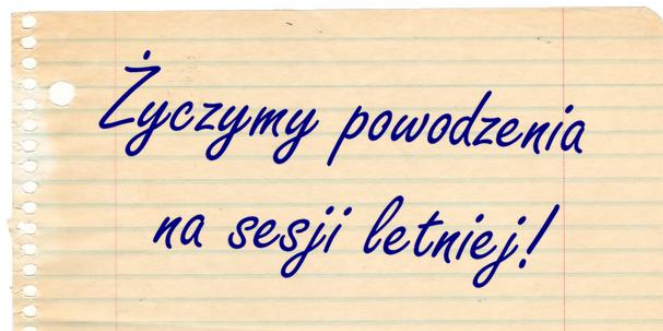 Życzymy powodzenia
na sesji letniej!